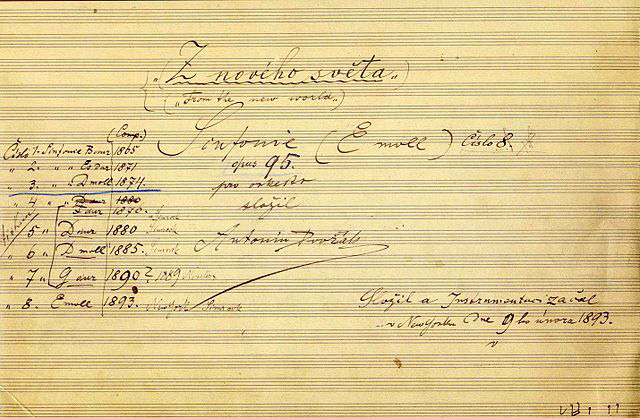 „Z nového světa„
(„From the new world„)
Sinfonie (E moll) Číslo 8.
opus 95.
pro orkestr
složil
Antonín Dvořák
(Comp.)
Číslo 1. Sinfonie B dur 1865
„ 2. „ Es dur 1871
„ 3. „ D moll 1874.
„ 4 „ D dur 1880
F dur 1870. Simrock
5 „ D dur 1880 Simrock
„ 6 „ D moll 1885. Simrock
„ 7 „ G dur 1890? 1889 Novello
„ 8. E moll 1893. New York Simrock
Složil a Instrumentaci začal
v New Yorku Dne 9ho února 1893.